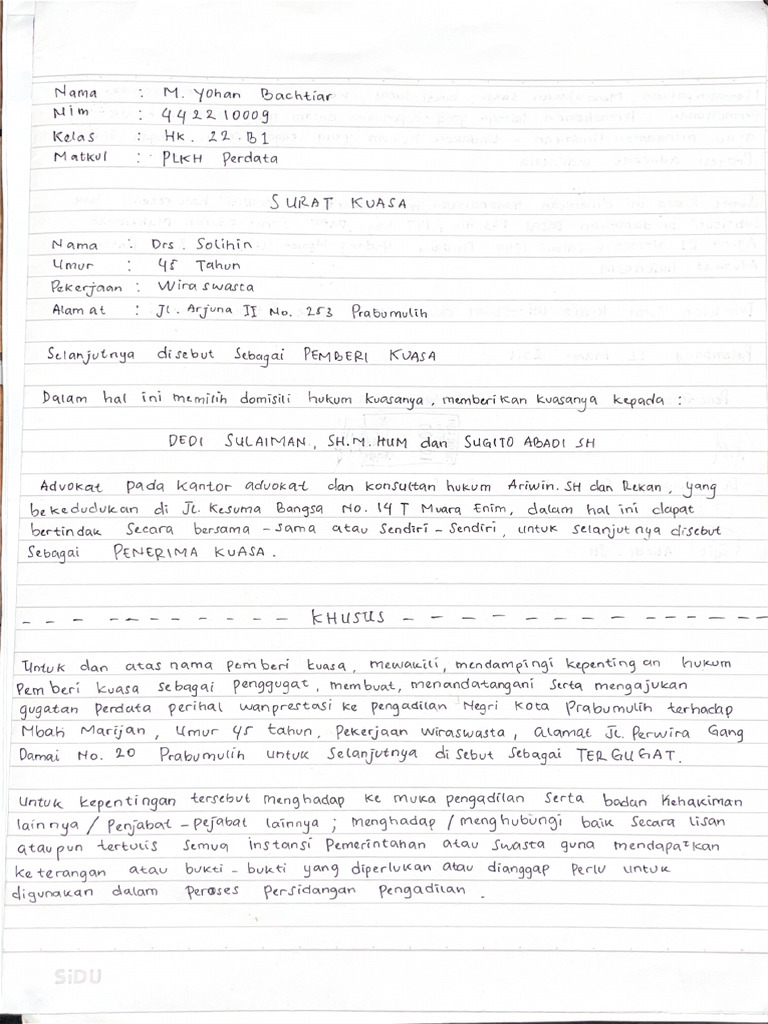 Nama : M. Yohan Bachtiar
Nim : 442210009
Kelas : Hk. 22. B1
Matkul : PLKH Perdata
SURAT KUASA
Nama : Drs. Solihin
Umur : 45 Tahun
Pekerjaan : Wiraswasta
Alamat : Jl. Arjuna II No. 253 Prabumulih
Selanjutnya disebut Sebagai PEMBERI KUASA
Dalam hal ini memilih domisili hukum kuasanya, memberikan kuasanya kepada :
DEDI SULAIMAN, SH.M.HUM dan SUGITO ABADI SH
Advokat pada kantor advokat dan konsultan hukum Ariwin.SH dan Rekan, yang
bekedudukan di Jl. Kesuma Bangsa No. 14 T Muara Enim, dalam hal ini dapat
bertindak Secara bersama-sama atau Sendiri-Sendiri, untuk selanjutnya disebut
Sebagai PENERIMA KUASA.
- - - - - - - - - - KHUSUS - - - - - - - - - - - -
Untuk dan atas nama pemberi kuasa, mewakili, mendampingi kepentingan hukum
Pemberi kuasa sebagai penggugat, membuat, menandatangani Serta mengajukan
gugatan Perdata perihal wanprestasi ke pengadilan Negri Kota Prabumulih terhadap
Mbah Marijan, Umur 45 tahun, Pekerjaan Wiraswasta, alamat Jl. Perwira Gang
Damai No. 20 Prabumulih untuk Selanjutnya disebut sebagai TERGUGAT.
Untuk kepentingan tersebut menghadap ke muka pengadilan Serta badan Kehakiman
lainnya / Penjabat-pejabat lainnya ; menghadap / menghubungi baik Secara lisan
ataupun tertulis Semua instansi Pemerintahan atau Swasta guna mendapatkan
keterangan atau bukti-bukti yang diperlukan atau dianggap Perlu untuk
digunakan dalam Peroses Persidangan Pengadilan.
SiDU